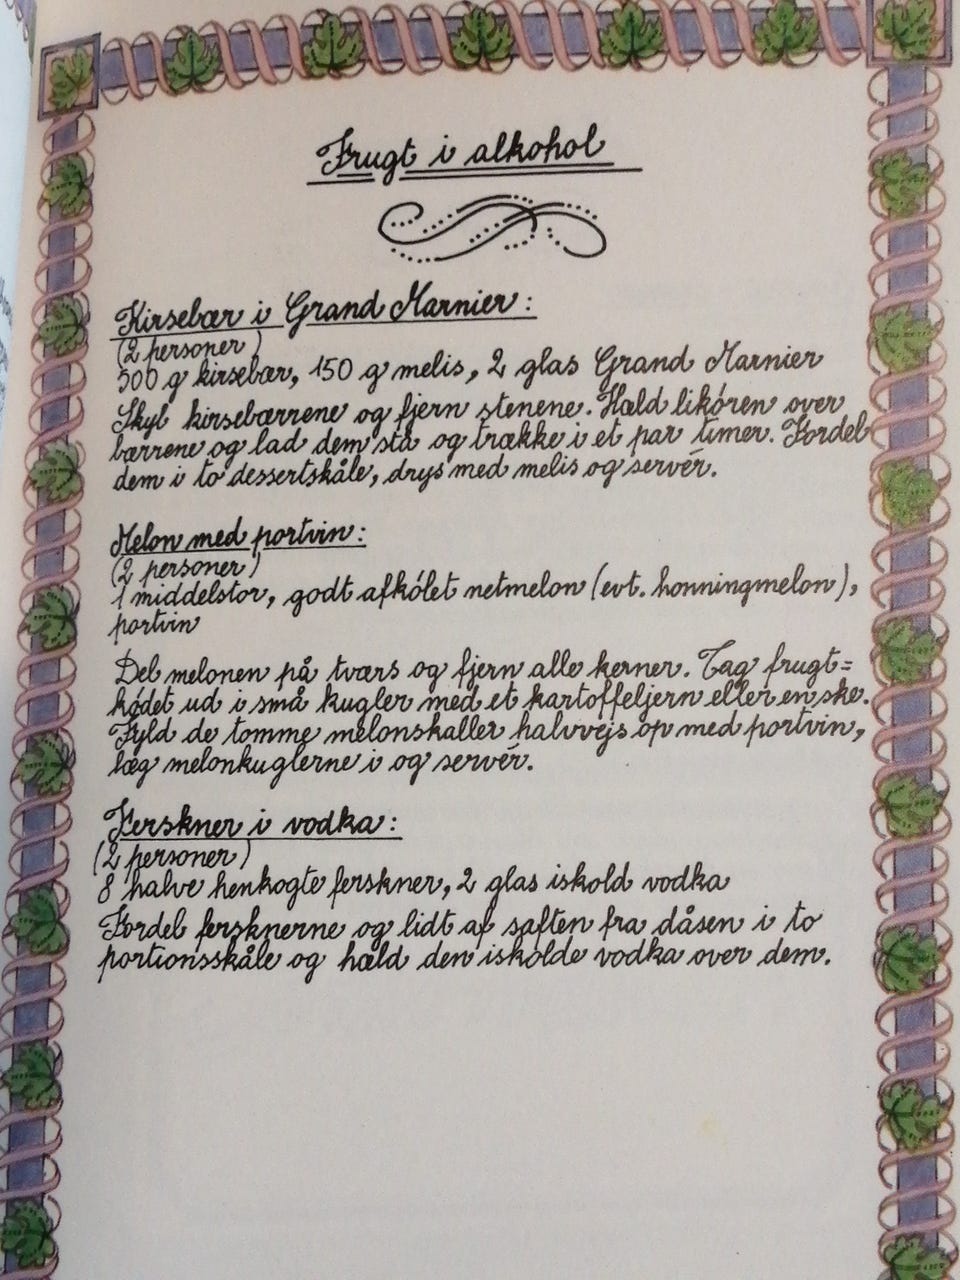 Frugt i alkohol
Kirsebær i Grand Marnier:
(2 personer)
500 g kirsebær, 150 g melis, 2 glas Grand Marnier
Skyl kirsebærrene og fjern stenene. Hæld likøren over
bærrene og lad dem stå og trække i et par timer. Fordel
dem i to dessertskåle, drys med melis og servér.
Melon med portvin:
(2 personer)
1 middelstor, godt afkølet netmelon (evt. honningmelon),
portvin
Del melonen på tværs og fjern alle kerner. Tag frugt=
kødet ud i små kugler med et kartoffeljern eller en ske.
Fyld de tomme melonskaller halvvejs op med portvin,
læg melonkuglerne i og servér.
Ferskner i vodka:
(2 personer)
8 halve henkogte ferskner, 2 glas iskold vodka
Fordel fersknerne og lidt af saften fra dåsen i to
portionsskåle og hæld den iskolde vodka over dem.